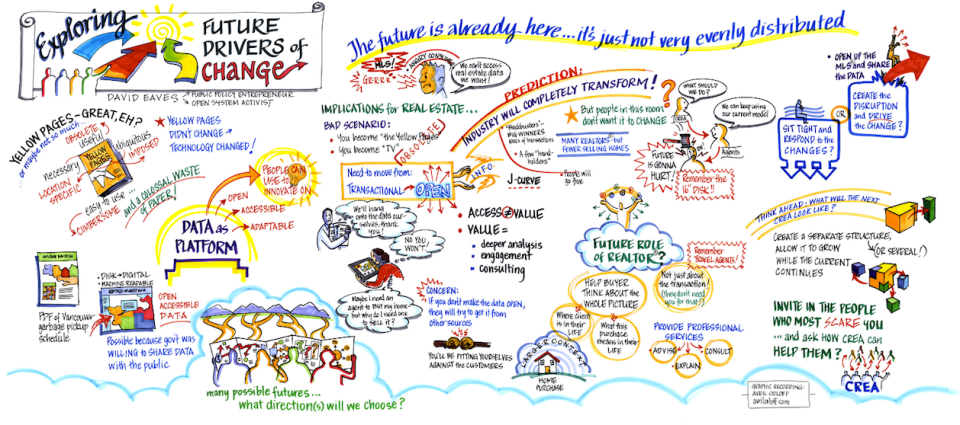 Exploring
FUTURE
DRIVERS of
CHANGE
DAVID EAVES
PUBLIC POLICY ENTREPRENEUR
OPEN SYSTEM ACTIVIST
YELLOW PAGES~GREAT, EH?
or maybe not so much
OBSOLETE
useful
Ubiquitous
IMPOSED
necessary
LOCATION
SPECIFIC
YELLOW
PAGES
easy to use...
CUMBERSOME
and a COLOSSAL WASTE
of PAPER!
YELLOW PAGES
DIDN'T CHANGE
TECHNOLOGY CHANGED!
PEOPLE CAN
USE to
INNOVATE ON
OPEN
ACCESSIBLE
ADAPTABLE
DATA as
PLATFORM
PDF of Vancouver
garbage pickup
schedule
DISK→DIGITAL
MACHINE READABLE
OPEN
ACCESSIBLE
DATA
Possible because govt was
WILLING to SHARE DATA
with the public
many possible futures...
what direction(s) will we choose?
The future is already here...it's just not very evenly distributed
MLS!
GRRRR
ANGRY CONSUMER
We can't access
real estate data
we want!
IMPLICATIONS for REAL ESTATE...
BAD SCENARIO:
You become "the Yellow Pages"
You become "TV"
OBSOLETE
Need to move from:
TRANSACTIONAL
OPEN
INFO
We'll hang
onto the data our-
selves, thank
you!
NO YOU
WON'T
Maybe I need an
agent to BUY my home
but why do I need one
to sell it?
ACCESS≠VALUE
VALUE =
deeper analysis
engagement
consulting
CONCERN:
If you don't make the data OPEN,
they will try to get it from
other sources
YOU'LL BE PITTING YOURSELVES
AGAINST the CUSTOMERS
PREDICTION:
INDUSTRY WILL COMPLETELY TRANSFORM!
"Blockbusters"-
BIG WINNERS
LOTS of TRANSACTIONS
A few "hand-
holders"
J-CURVE
But people in this room
don't want it to CHANGE
MANY REALTORS~but
FEWER SELLING HOMES
People will
go free
WHAT SHOULD
WE DO?
We can keep using
our current model!
Agents
FUTURE
IS GONNA
HURT!
Remember the
16" DISK!!
FUTURE ROLE
of REALTOR?
Remember
TRAVEL AGENTS!
HELP BUYER
THINK ABOUT the
WHOLE PICTURE
Not just about
the transaction
(they don't need
you for that!)
Where client
is in their
LIFE
What this
purchase
means in their
LIFE
LARGER CONTEXT
HOME
PURCHASE
PROVIDE PROFESSIONAL
SERVICES
ADVISE
CONSULT
EXPLAIN
OPEN UP the
MLS and SHARE
the DATA
SIT TIGHT and
RESPOND to the
CHANGES?
OR
CREATE the
DISRUPTION
and DRIVE
the CHANGE?
THINK AHEAD: WHAT WILL THE NEXT
CREA LOOK LIKE?
CREATE A SEPARATE STRUCTURE,
ALLOW IT to GROW
WHILE THE CURRENT
CONTINUES
(OR SEVERAL!)
INVITE IN THE PEOPLE
WHO MOST SCARE YOU
...and ask HOW CREA can
HELP THEM?
CREA
GRAPHIC RECORDING:
AVRIL ORLOFF
avrilorloff.com